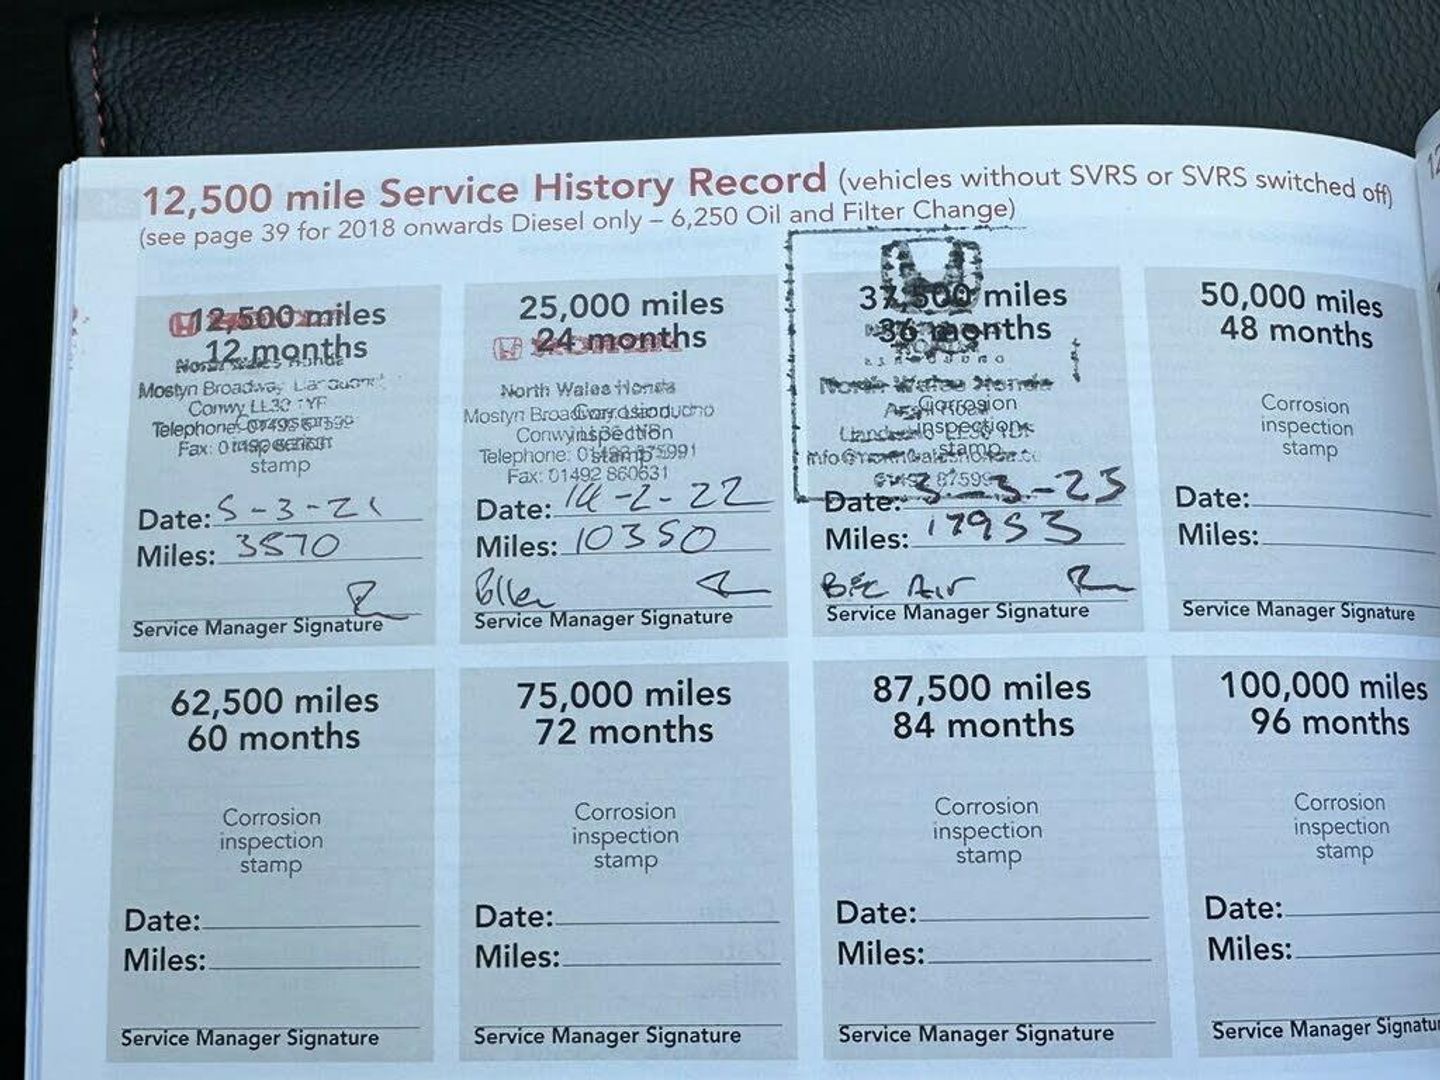 12,500 mile Service History Record (vehicles without SVRS or SVRS switched off)
(see page 39 for 2018 onwards Diesel only – 6,250 Oil and Filter Change)
12,500 miles
12 months
North Wales Honda
Mostyn Broadway
Conwy
Telephone:
Fax:
stamp
Date: 5-3-21
Miles: 3570
Service Manager Signature
25,000 miles
24 months
North Wales Honda
Mostyn Broadway Llandudno
Corrosion
Conwy
inspection
Telephone:
stamp
Fax: 01492 860631
Date: 14-2-22
Miles: 10350
Service Manager Signature
37,500 miles
36 months
North Wales Honda
Corrosion
inspection
stamp
Date: 3-3-23
Miles: 17953
Air
Service Manager Signature
50,000 miles
48 months
Corrosion
inspection
stamp
Date:
Miles:
Service Manager Signature
62,500 miles
60 months
Corrosion
inspection
stamp
Date:
Miles:
Service Manager Signature
75,000 miles
72 months
Corrosion
inspection
stamp
Date:
Miles:
Service Manager Signature
87,500 miles
84 months
Corrosion
inspection
stamp
Date:
Miles:
Service Manager Signature
100,000 miles
96 months
Corrosion
inspection
stamp
Date:
Miles:
Service Manager Signatu